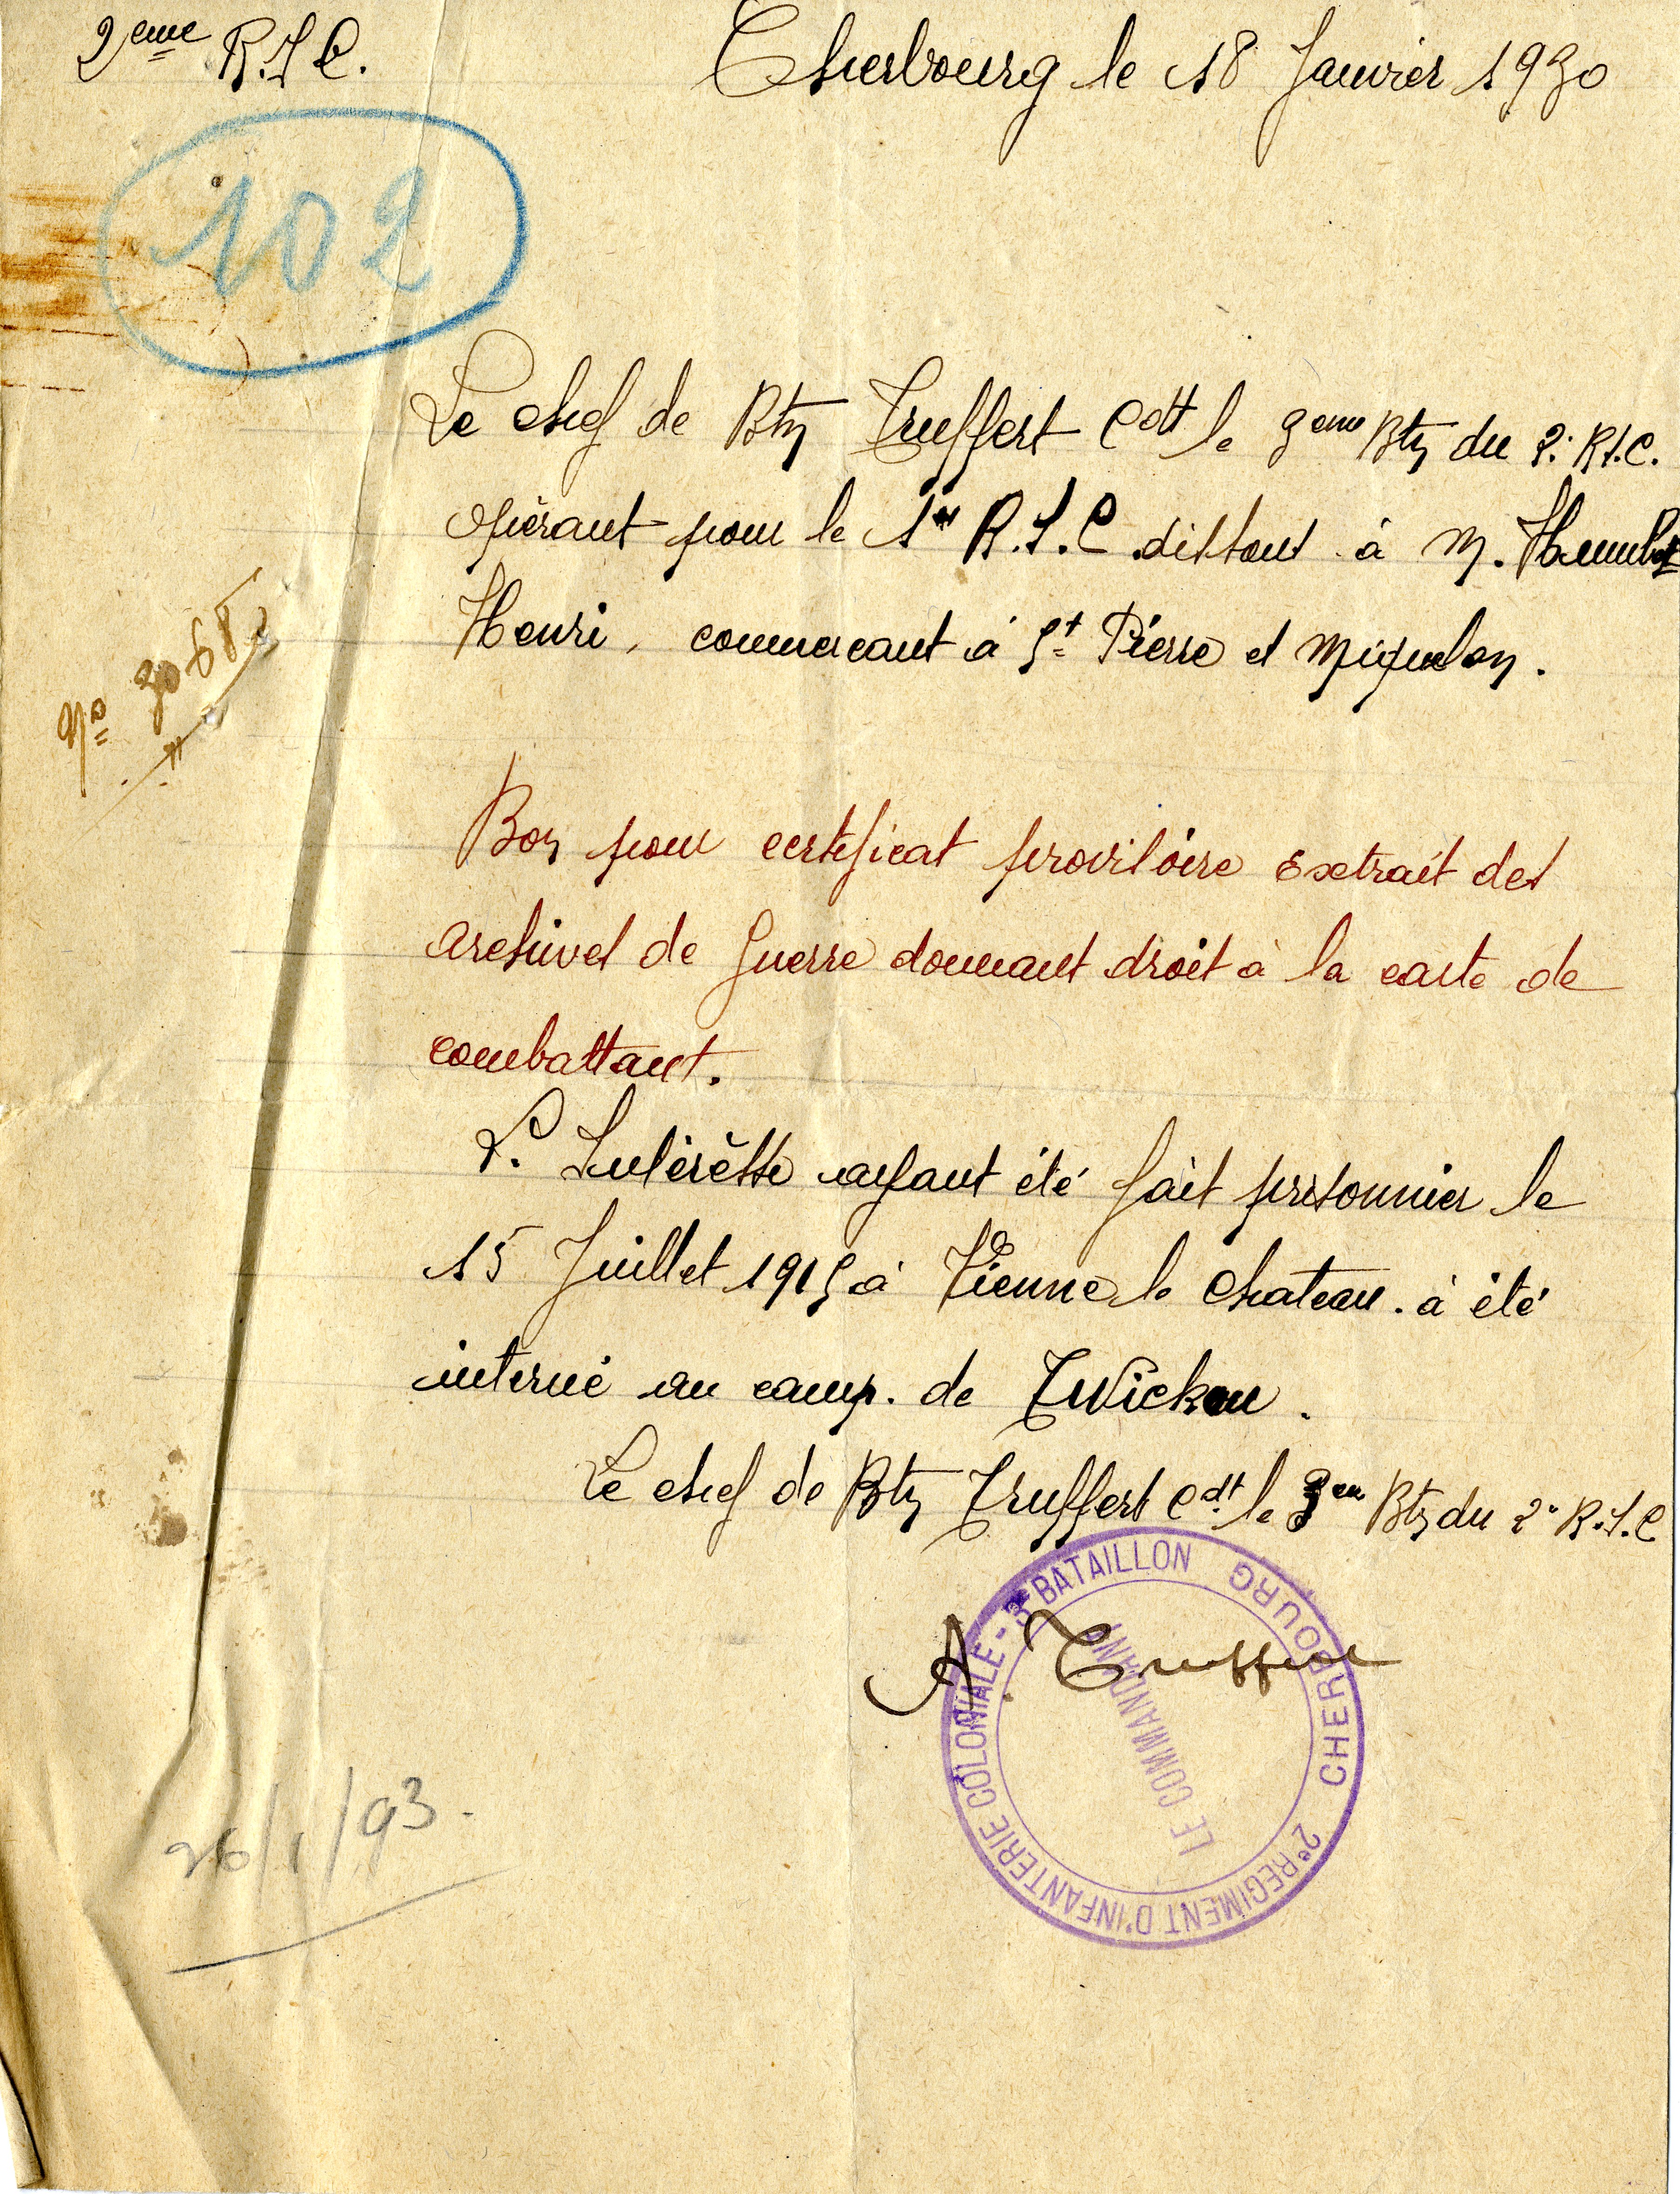 2eme R.I.C.
Cherbourg le 18 Janvier 1930
102
Le chef de Btn Truffert Cdt le 3eme Btn du 2e R.I.C.
opérant pour le 1er R.I.C. distout à M.
Henri, commercant à St Pierre et Miquelon.
No 3068
Bon pour certificat provisoire extrait des
archives de guerre donnant droit à la carte de
combattant.
L'Intérèssé ayant été fait prisonnier le
15 Juillet 1915 à Vienne le Chateau. à été
interné au camp. de Zwickau.
Le chef de Btn Truffert Cdt le 3eme Btn du 2e R.I.C
A. Truffert
2e REGIMENT D'INFANTERIE COLONIALE - 3e BATAILLON
CHERBOURG
LE COMMANDANT
26/1/93.